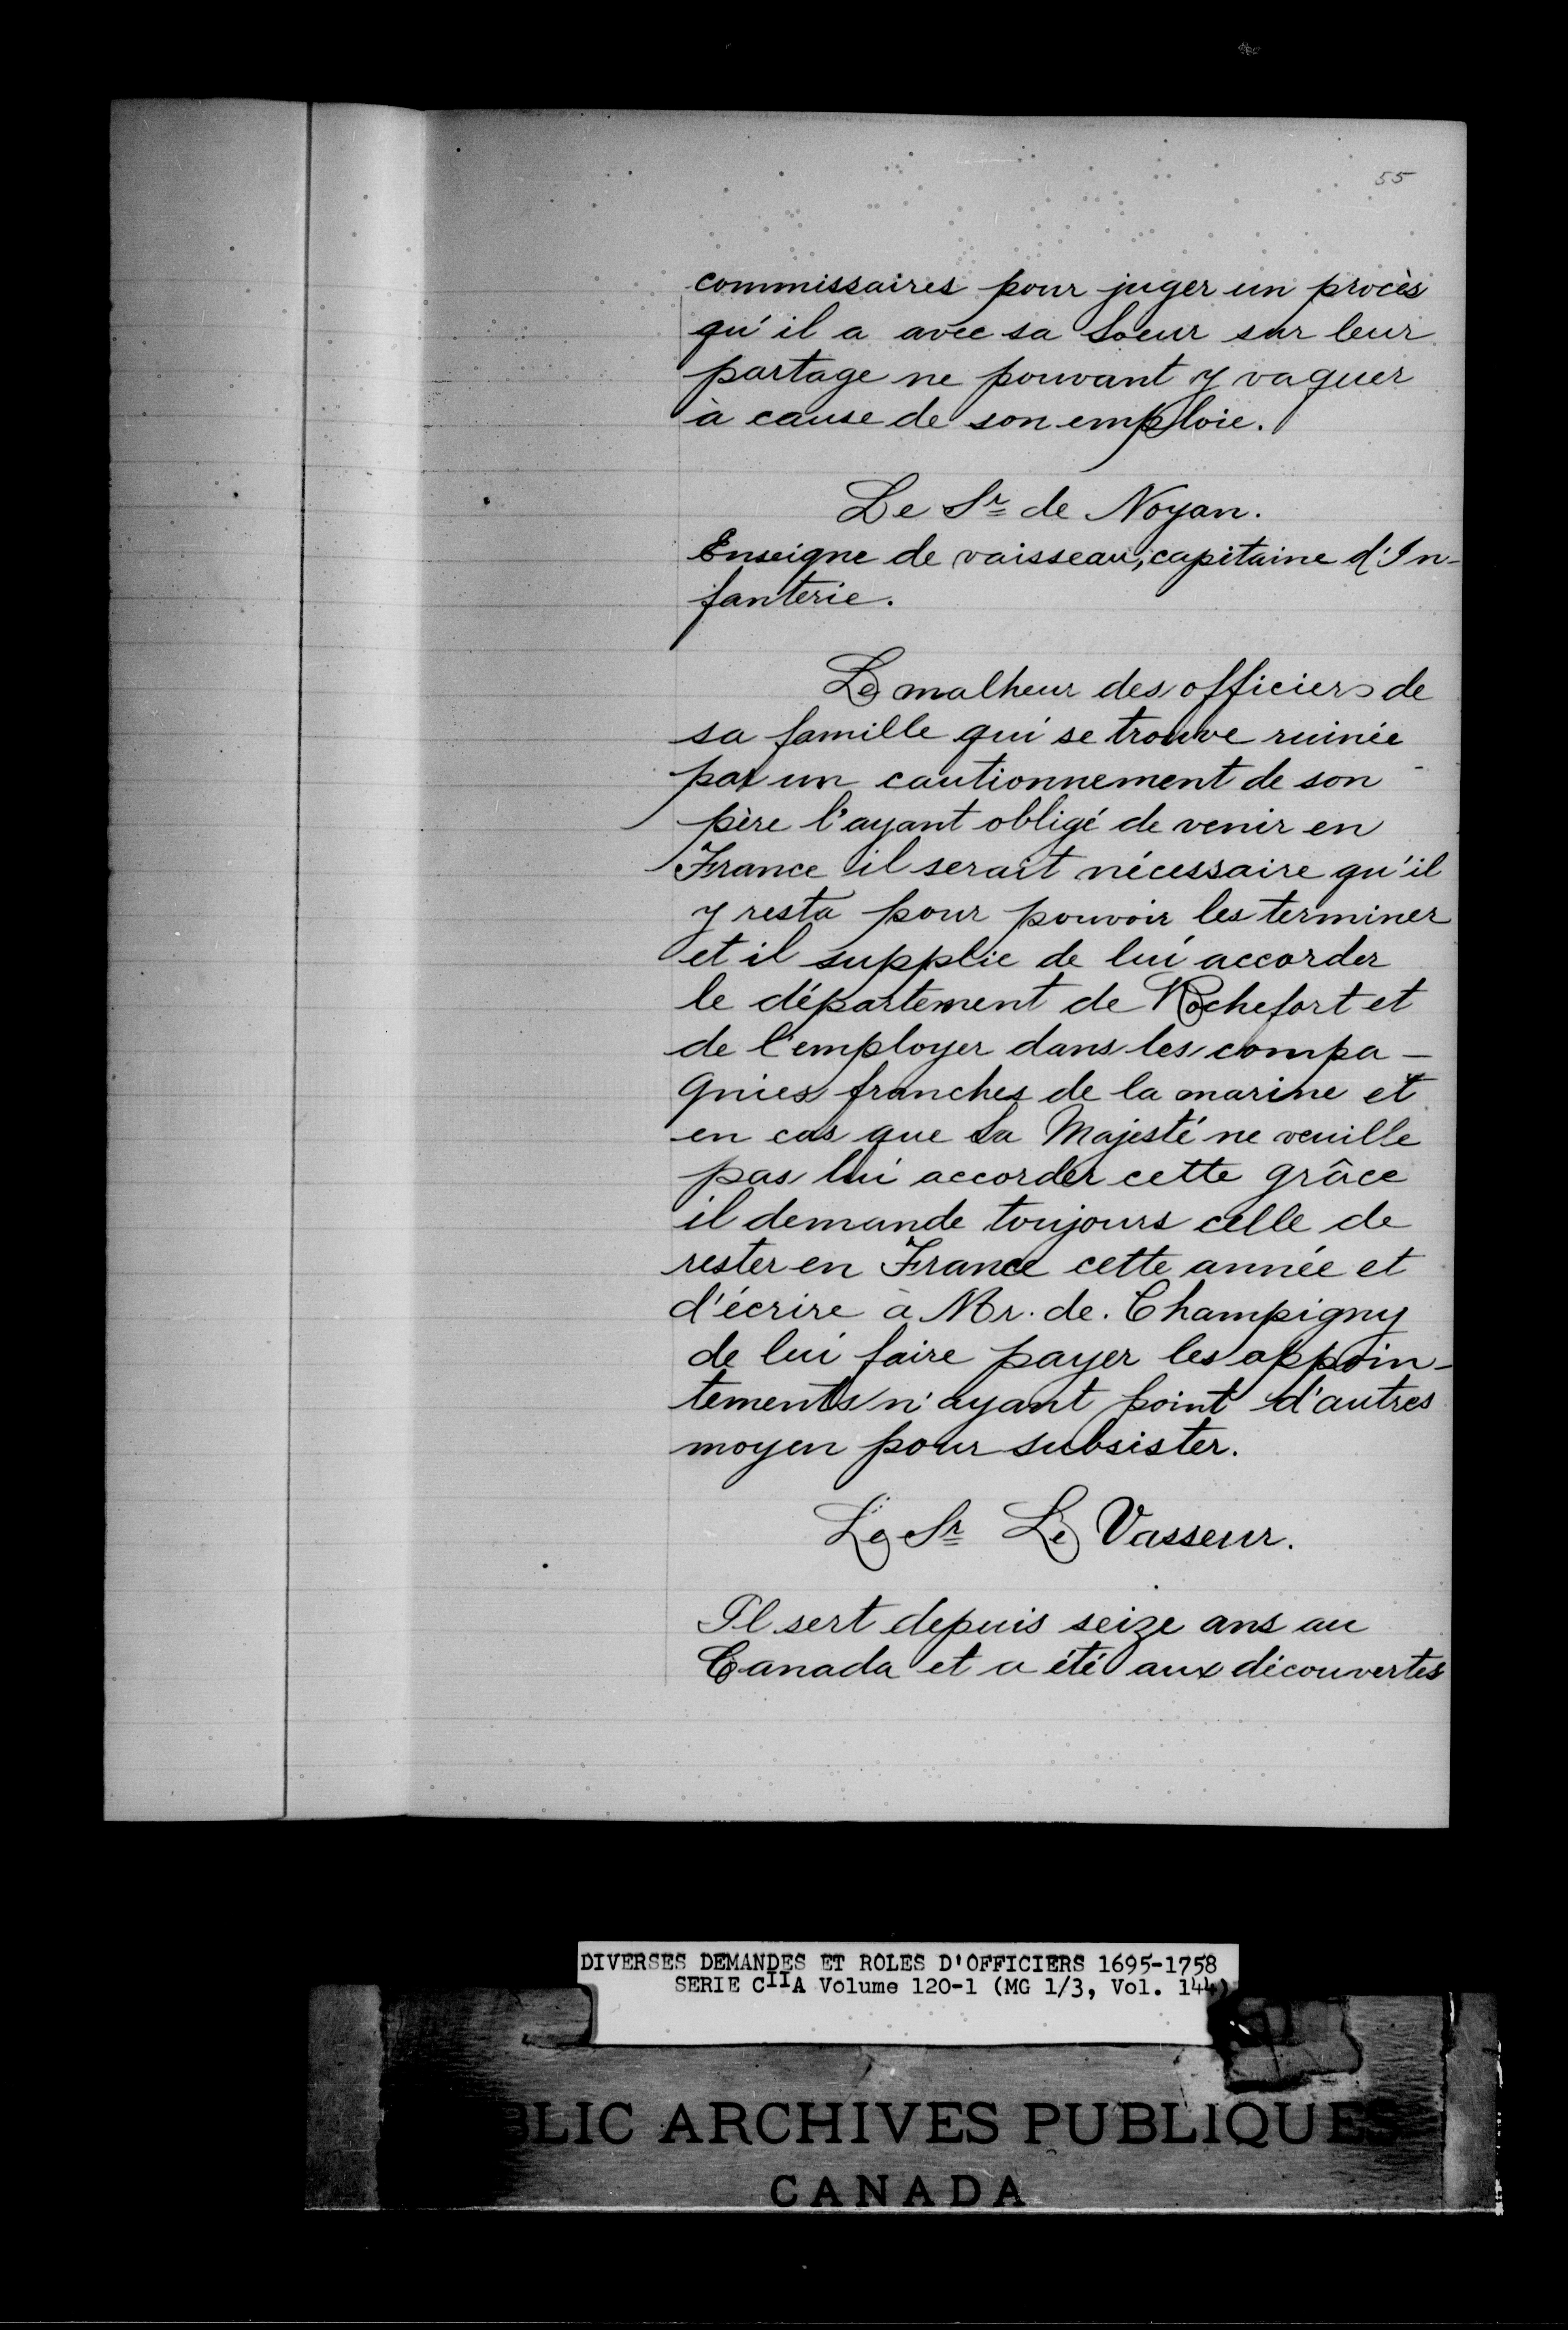 55
commissaires pour juger un procès
qu'il a avec sa Soeur sur leur
partage ne pouvant y vaquer
à cause de son emploie.
Le Sr de Noyan.
Enseigne de vaisseau, capitaine d'In-
fanterie.
Le malheur des officiers de
sa famille qui se trouve ruinée
par un cautionnement de son
père l'ayant obligé de venir en
France il serait nécessaire qu'il
y resta pour pouvoir les terminer
et il supplie de lui accorder
le département de Rochefort et
de l'employer dans les compa-
gnies franches de la marine et
en cas que Sa Majesté ne veuille
pas lui accorder cette grâce
il demande toujours celle de
rester en France cette année et
d'écrire à Mr. de. Champigny
de lui faire payer les appoin-
tements n'ayant point d'autres
moyen pour subsister.
Le Sr Le Vasseur.
Il sert depuis seize ans au
Canada et a été aux découvertes
DIVERSES DEMANDES ET ROLES D'OFFICIERS 1695-1758
SERIE CIIA Volume 120-1 (MG 1/3, Vol. 144)
BLIC ARCHIVES PUBLIQUES
CANADA